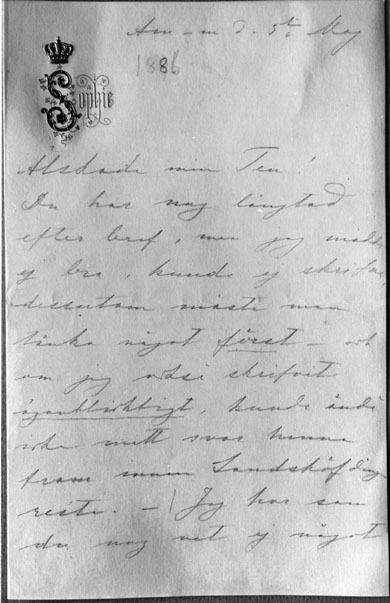 Sophie
d. 5te Maj
1886
Alskade min Ten!
Du har nog längtad
efter bref, men jag mådde
ej bra, kunde ej skrifva,
dessutom måste man
tänka något först - och
om jag också skrifvit
ögonblickligt, kunde ändå
icke mitt svar hinna
fram innan Landshöfding
reste. - Jag har som
du nog vet ej något